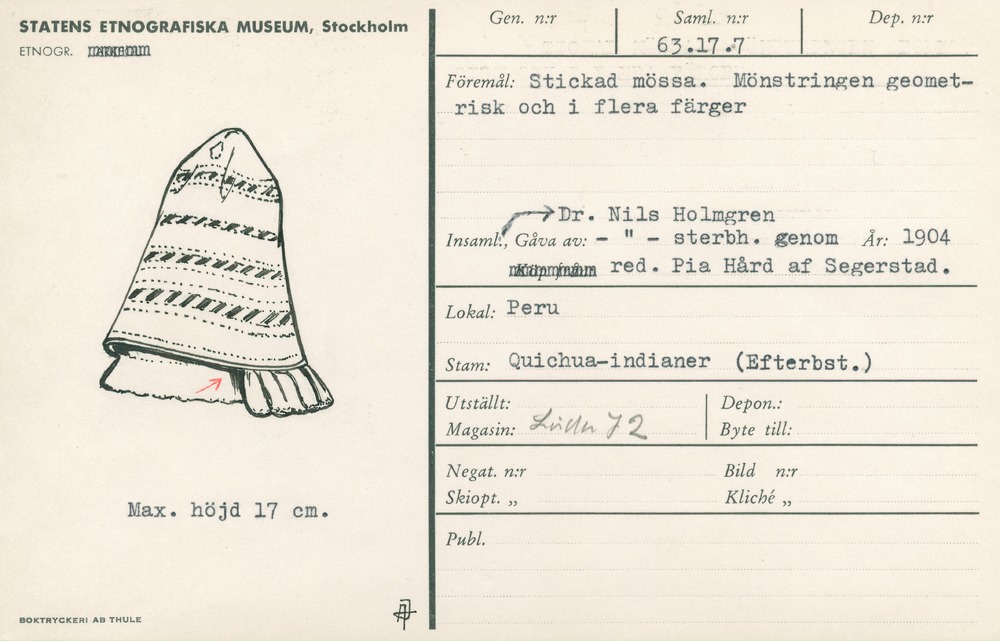 STATENS ETNOGRAFISKA MUSEUM, Stockholm
ETNOGR.
Max. höjd 17 cm.
BOKTRYCKERI AB THULE
Gen. n:r Saml. n:r Dep. n:r
63.17.7
Föremål: Stickad mössa. Mönstringen geomet-
risk och i flera färger
Dr. Nils Holmgren
Insaml., Gåva av: - " - sterbh. genom År: 1904
red. Pia Hård af Segerstad.
Lokal: Peru
Stam: Quichua-indianer (Efterbst.)
Utställt: Depon.:
Magasin: 72 Byte till:
Negat. n:r Bild n:r
Skiopt. „ Kliché „
Publ.